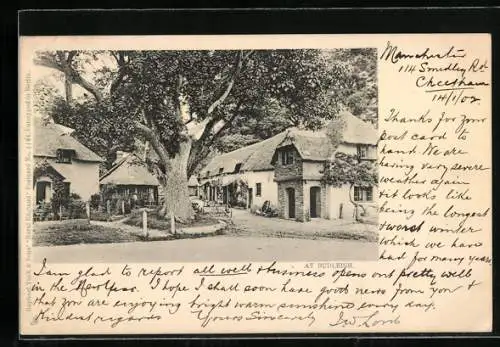 Manchester
114 Smedley Rd
Cheetham
14/1/02
Thanks for your
post card to
hand. We are
having very severe
weather again
& it looks like
being the longest
& worst winter
which we have
had for many years
AT BUDLEIGH.
I am glad to report all well & business opens out pretty well
in the I hope I shall soon have good news from you &
that you are enjoying bright warm sunshine every day.
Kindest regards Yours Sincerely Lord